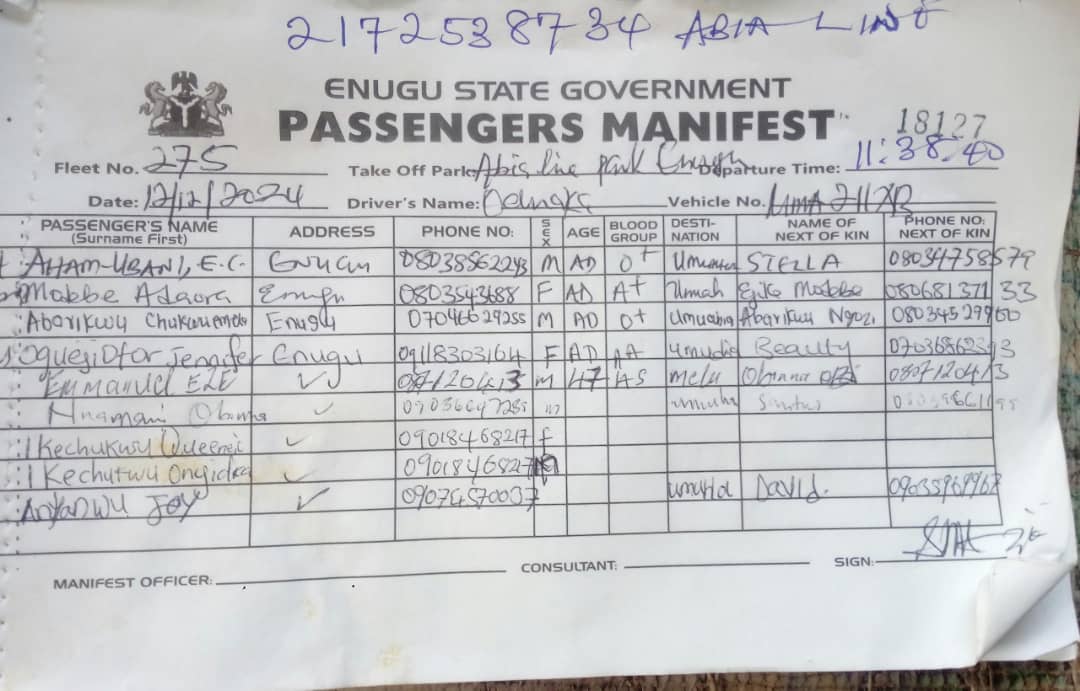 2172538734 ABIA LINE
ENUGU STATE GOVERNMENT
PASSENGERS MANIFEST
18127
Fleet No. 275 Take Off Park: Abia line park Enugu Departure Time: 11:38:40
Date: 12/12/2024 Driver's Name: Vehicle No. UMA 211 XR
PASSENGER'S NAME (Surname First) ADDRESS PHONE NO: SEX AGE BLOOD GROUP DESTI-NATION NAME OF NEXT OF KIN PHONE NO: NEXT OF KIN
AHAM-UBANI, E.C. Enugu 08038862243 M AD O+ STELLA 08034758579
Mobbe Adaora Enugu 0803543688 F AD A+ Umah Ejike Modebe 08068137133
Abarikwu Chukwuemeka Enugu 07046629255 M AD O+ Umuahia Abarikwu Ngozi 08034529960
Oguejiofor Jennifer Enugu 09118303164 F AD AA Umuahia Beauty
Emmanuel EZE ✓✓ M 47 AS Obinna
Nnamani Obinna ✓ M
Ikechukwu Queenei ✓ 09018468217 f
Ikechukwu Onyidika ✓ 09018468217
Anyanwu Joy ✓ 09074570037 David.
MANIFEST OFFICER: CONSULTANT: SIGN: